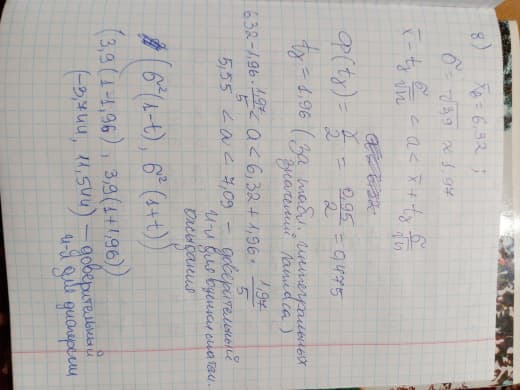 8) x̄_в = 6,32 ;
σ = √3,9 ≈ 1,97
x̄ - t_γ σ/√n < a < x̄ + t_γ σ/√n
Ф(t_γ) = γ/2 = 0,95/2 = 0,475
t_γ = 1,96 (за табл. интегральных
значений Лапласа)
6,32 - 1,96 · 1,97/5 < a < 6,32 + 1,96 · 1,97/5
5,55 < a < 7,09 - доверительный
и-л для оценки матем.
ожидания
(σ²(1-t), σ²(1+t))
(3,9(1-1,96), 3,9(1+1,96))
(-3,744, 11,544) - доверительный
и-л для дисперсии